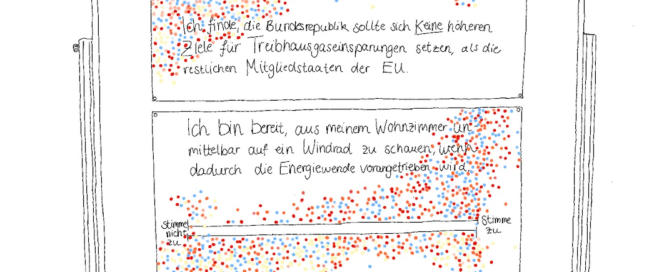 Ich finde, die Bundesrepublik sollte sich Keine höheren
Ziele für Treibhausgaseinsparungen setzen, als die
restlichen Mitgliedstaaten der EU.
Ich bin bereit, aus meinem Wohnzimmer un
mittelbar auf ein Windrad zu schauen, wenn
dadurch die Energiewende vorangetrieben wird.
Stimme
nicht
zu
Stimme
zu